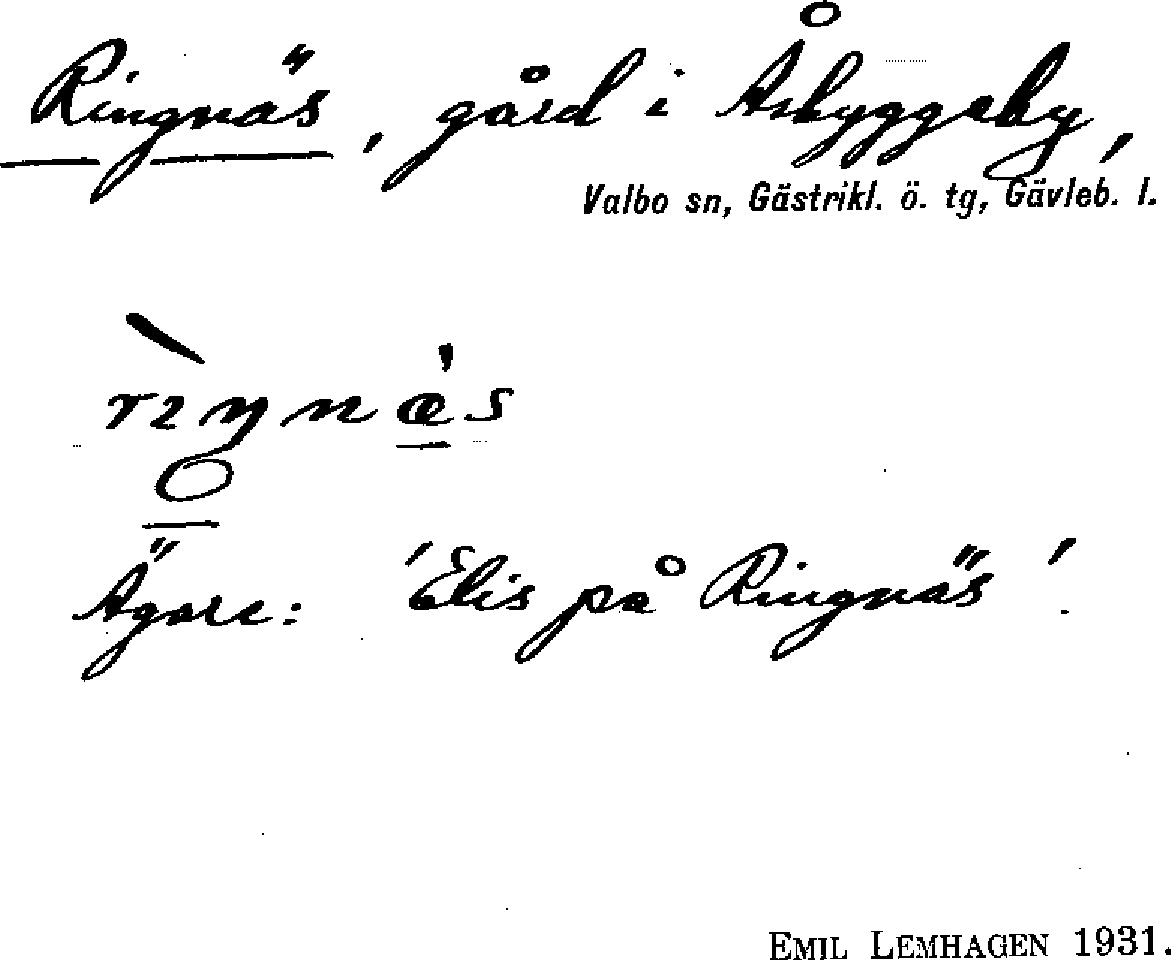 Ringnäs, gård i Åsbyggeby,
Valbo sn, Gästrikl. ö. tg, Gävleb. l.
rıŋnæ̀s
Ägare: 'Elis på Ringnäs'.
EMIL LEMHAGEN 1931.